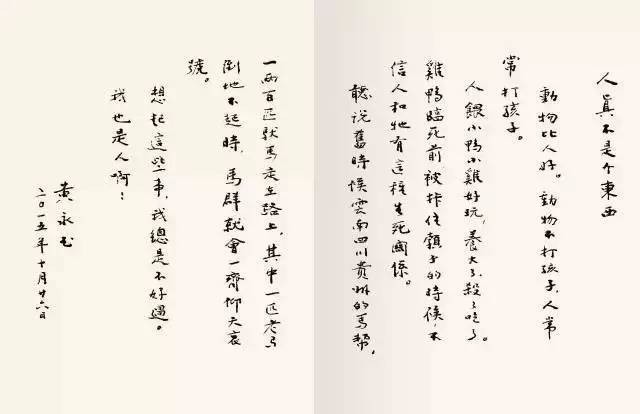 人真不是个東西
動物比人好。動物不打孩子,人常
常打孩子。
人餵小鴨小雞好玩,養大了殺了吃了。
雞鴨臨死前被卡住頸子的時候,不
信人和牠有這種生死關係。
聽说舊時候雲南四川貴州的馬幫,
一兩百匹馱馬走在路上,其中一匹老馬
倒地不起時,馬群就會一齊仰天哀
號。
想起這些事,我總是不好過。
我也是人啊!
黃永玉
二〇一五年十月廿六日